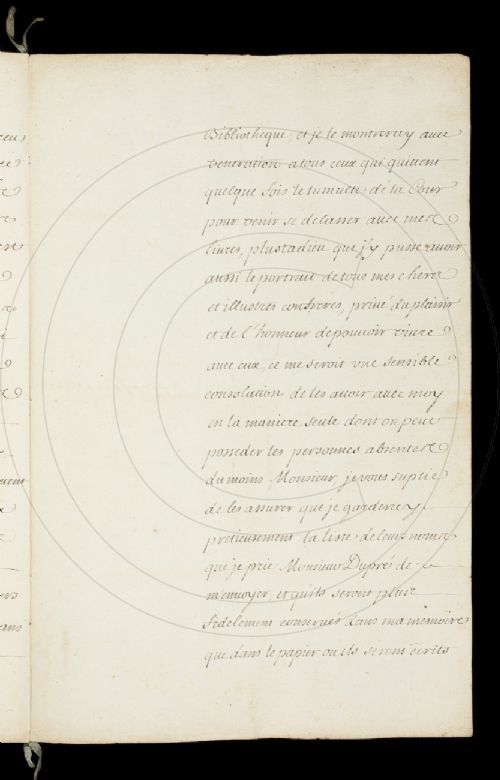 Bibliotheque, et je le montrerey avec
veneration a tous ceux qui quittent
quelque fois le tumulte de la Cour
pour venir se delasser avec mes
livres, plust a dieu que j'y pusse avoir
aussi le portrait de tous mes chers
et illustres confreres, privé du plaisir
et de l'honneur de pouvoir vivre
avec eux, ce me seroit une sensible
consolation de les avoir avec moy
en la maniere seule dont on peut
posseder les personnes absentes
du moins Monsieur, je vous suplie
de les assurer que je garderey
pretieusement la liste de leurs noms
que je prie Monsieur Duprés de
m'envoyer, et qu'ils seront plus
fidelement conservés dans ma memoire
que dans le papier ou ils seront ecrits